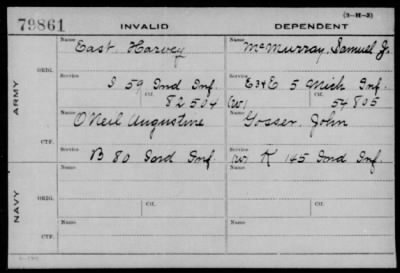 (3-H-3)
79861 INVALID DEPENDENT
ARMY ORIG. CTF.
Name East Harvey
Name McMurray, Samuel J.
Service I 59 Ind Inf.
Service E & E. 5 Mich Inf.
Ctf. 82504
(W) Ctf. 54805
Name O'Neil Augustine
Name Gosser, John
Service B 80 Ind Inf.
Service W K 145 Ind Inf.
NAVY ORIG. CTF.
Name
Name
Service Ctf.
Service Ctf.
Name
Name